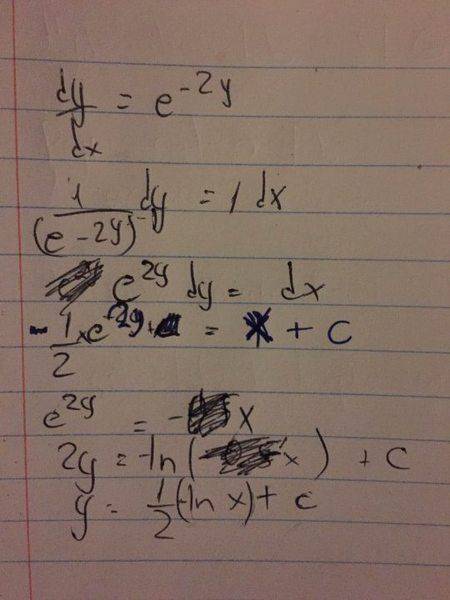 dy/dx = e^-2y
1/(e-2y) dy = 1 dx
e^2y dy = dx
-1/2 e^-2y = x + c
e^2y = - x
2y = -ln( x ) + c
y = 1/2 (-ln x) + c